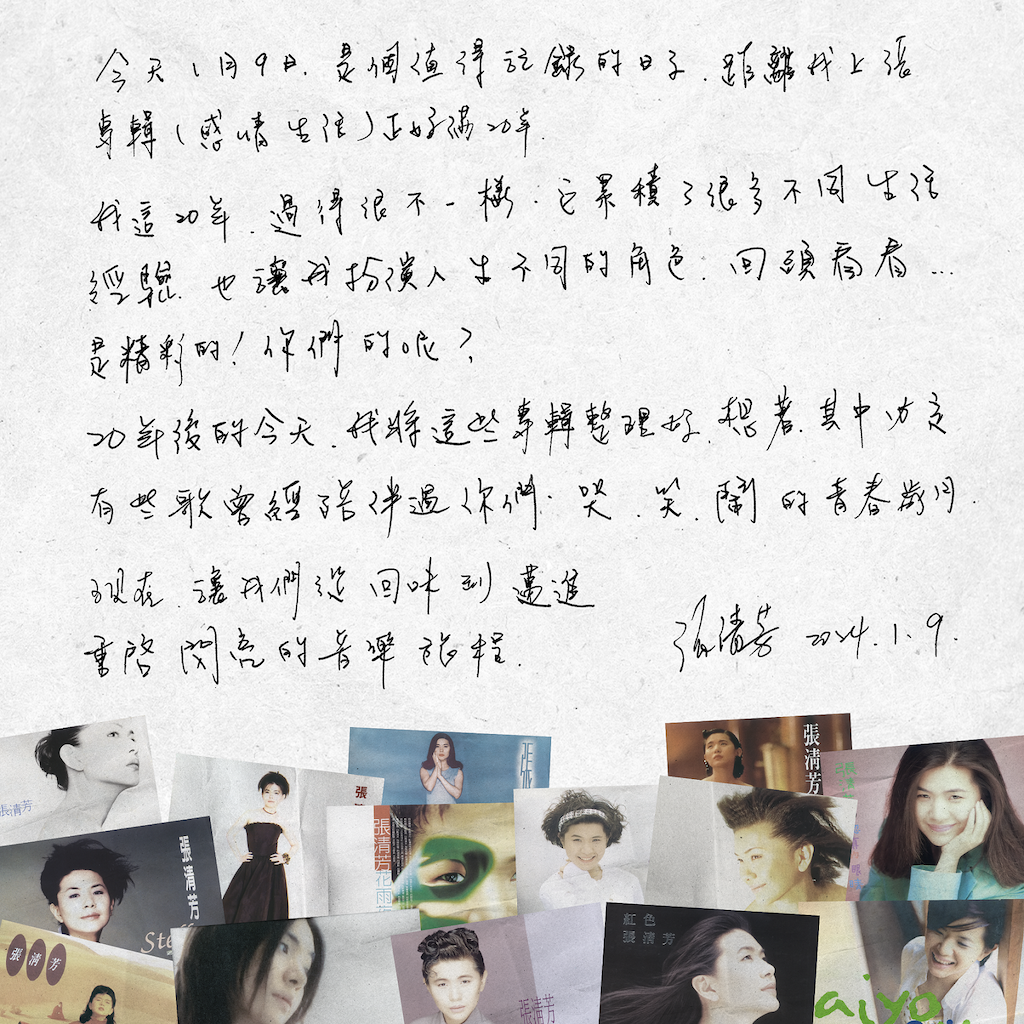 今天1月9日.是個值得記錄的日子.距離我上張
專輯(感情生活)正好滿20年.
我這20年.過得很不一樣.它累積了很多不同生活
經驗.也讓我扮演人生不同的角色.回頭看看...
是精彩的!你們的呢?
20年後的今天.我將這些專輯整理好.想著.其中必定
有些歌曾經陪伴過你們.哭.笑.鬧的青春歲月.
現在.讓我們從回味到邁進
重啓閃亮的音樂旅程.
張清芳 2024.1.9.
張清芳
張
張
張清芳
張清芳
張清芳
花雨
張清芳
張清芳
紅色
張清芳
張清芳
aiyo